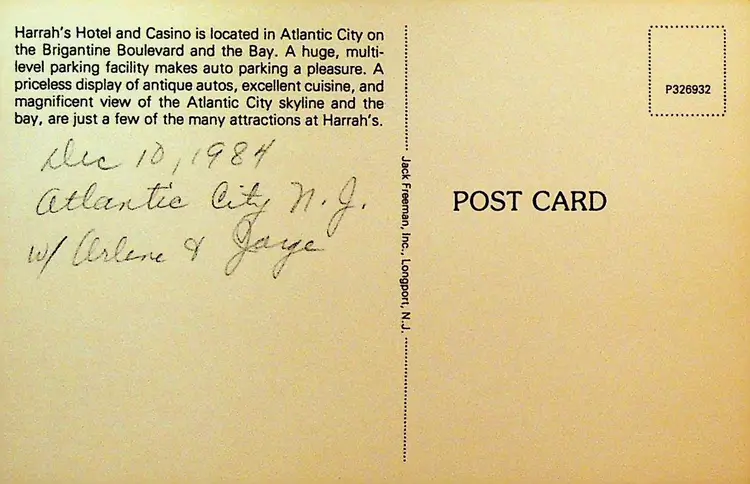 Harrah's Hotel and Casino is located in Atlantic City on
the Brigantine Boulevard and the Bay. A huge, multi-
level parking facility makes auto parking a pleasure. A
priceless display of antique autos, excellent cuisine, and
magnificent view of the Atlantic City skyline and the
bay, are just a few of the many attractions at Harrah's.
Dec 10, 1984
Atlantic City N.J.
w/ Arlene & Jaye
Jack Freeman, Inc., Longport, N.J.
P326932
POST CARD